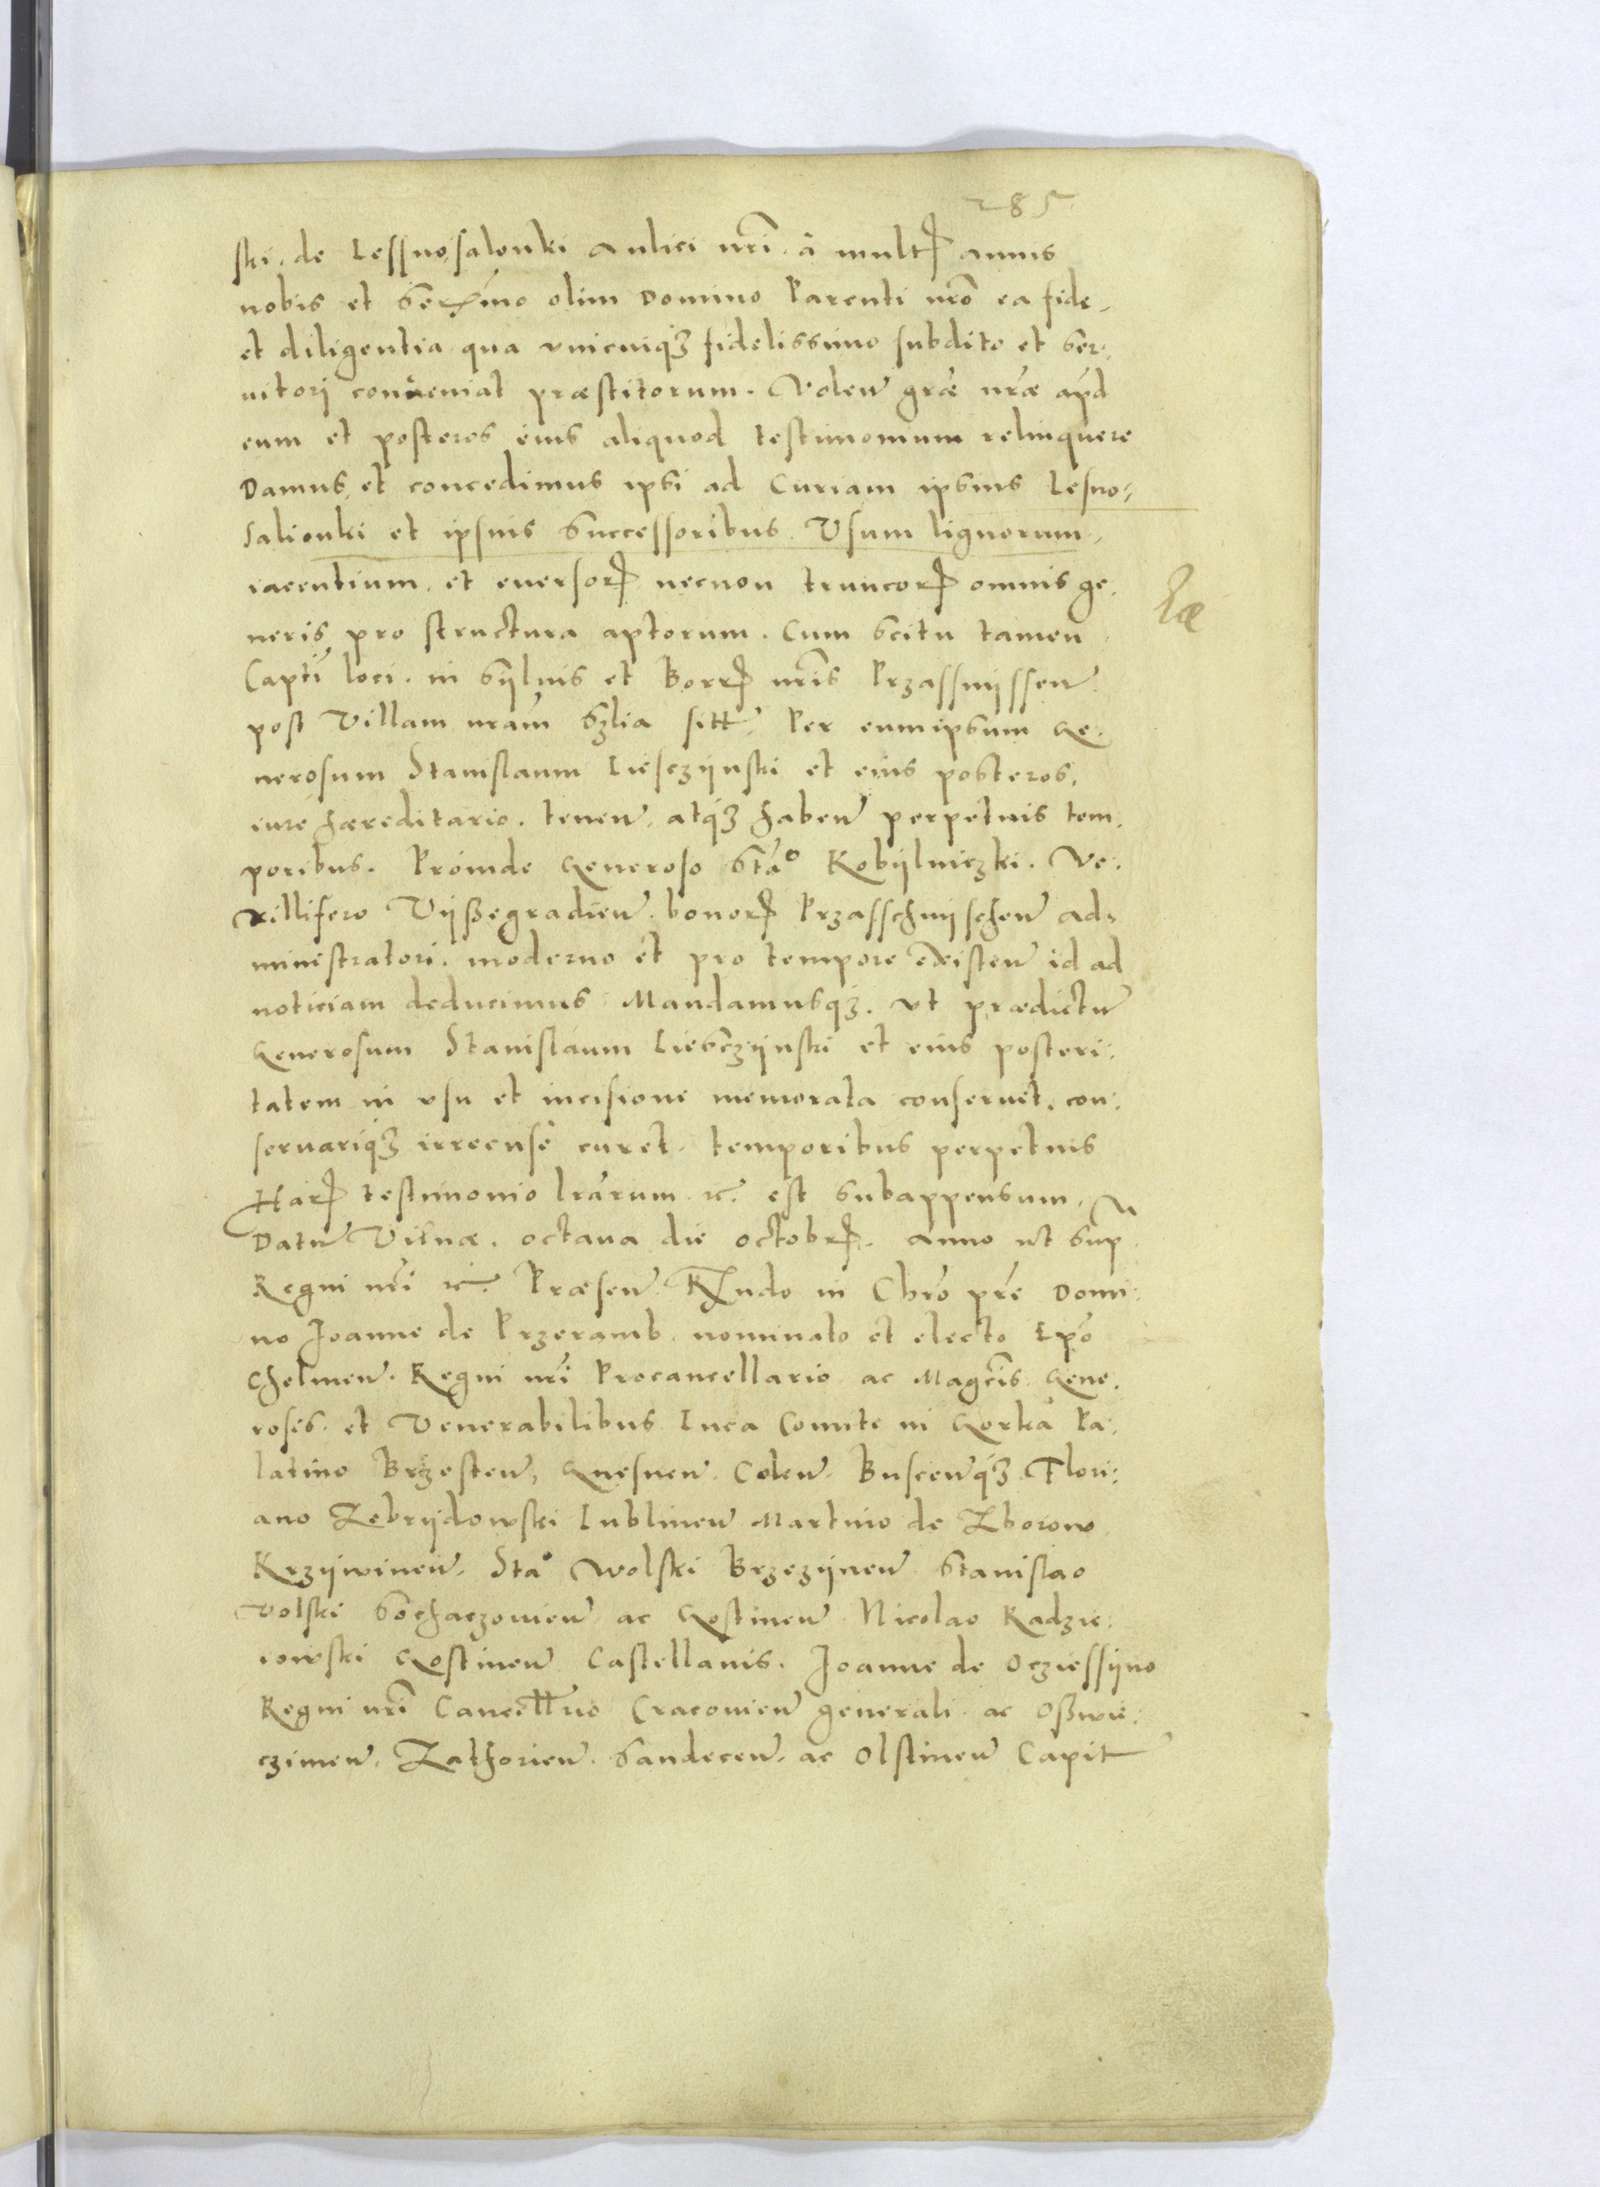 285
ski. de Lessnosalonki Aulici nrĩ. â multꝭ annis
nobis et Serẽmo olim Domino Parenti nrõ ea fide
et diligentia qua vnicuiqꝫ fidelissimo subdito et Ser
uitori conueniat præstitorum. Volen̄ grãe nrãe apd
eum et posteros eius aliquod testimonium relinquere
Damus et concedimus ipsi ad Curiam ipsius Lesno:
salionki et ipsius Successoribus Vsum lignorum
iacentium. et euersorꝝ necnon truncorꝝ omnis ge
neris pro structura aptorum. Cum Scitu tamen
Captĩ loci. in Sÿluis et Borrꝭ nrĩs Przassnÿssen̄
post Villam nrãm Szlia sitt. Per eumipsum Ge
nerosum Stanislaum Liesczÿnski et eius posteros.
iure hæreditario. tenen̄. atqꝫ haben̄ perpetuis tem
poribus. Proinde Generoso Stãº Kobÿlniczki. Ve:
xillifero Vÿßegradien̄. bonorꝝ Przasschnÿschen̄ ad
ministratori. moderno et pro tempore existen̄ id ad
noticiam deducimus Mandamusqꝫ. vt prædictũ
Generosum Stanislaum Liesczÿnski et eius posteri:
tatem in vsu et incisione memorata conseruet. con:
seruariqꝫ irrecusẽ curet. temporibus perpetuis
Harꝝ testimonio lrãrum ⁊c. est subappensum.
Datũ Vilnæ. octaua die octobrꝭ. Anno vt Sup
Regni nrĩ ⁊c. Præsen̄ Rx̃ndo in Chrõ prẽ Domi:
no Joanne de Przeramb. nominato et electo Epõ
Chelmen̄. Regni nrĩ Procancellario ac Magcĩs Gene
rosis. et Venerabilibus Luca Comite in Gorka Pa:
latino Brzesten̄, Gnesnen̄. Colen̄. Buscen̄qꝫ. Flori:
ano Zebrÿdowski Lublinen̄ Martino de Zborow
Krzÿwinen̄. Staº Wolski Brzezÿnen̄ Stanislao
Volski Sochaczouien̄ ac Gostinen̄ Nicolao Radzie:
iowski Gostinen̄ Castellanis. Joanne de Oczessÿno
Regni nrĩ Cancell̃rio Cracouien̄ generali ac Oßwie:
czimen̄. Zathorien̄. Sandecen̄. ac Olstinen̄ Capit